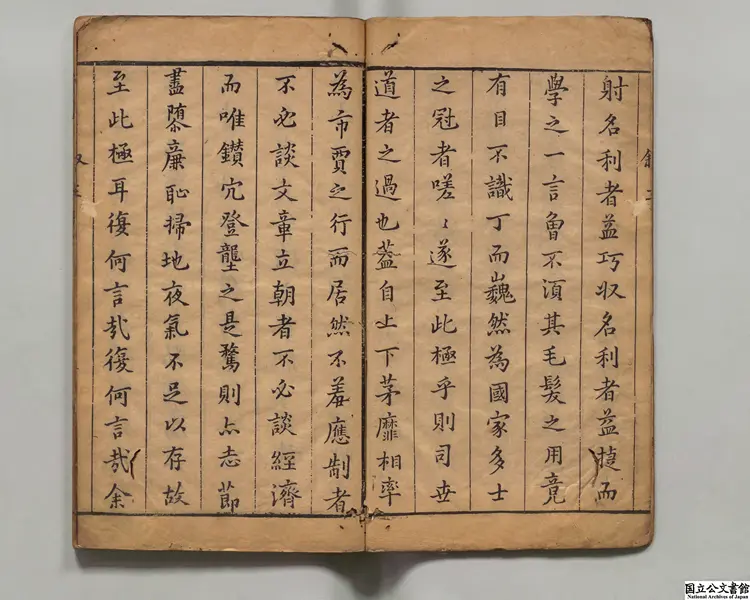 射名利者益巧収名利者益捷而
學之一言曾不湏其毛髮之用竟
有目不識丁而巍然為國家多士
之冠者嗟〻遂至此極乎則司世
道者之過也蓋自上下茅靡相率
為市賈之行而居然不羞應制者
不必談文章立朝者不必談經濟
而唯鑚穴登壟之是騖則亦志節
盡隳亷恥掃地夜氣不足以存故
至此極耳復何言哉復何言哉余
国立公文書館
National Archives of Japan